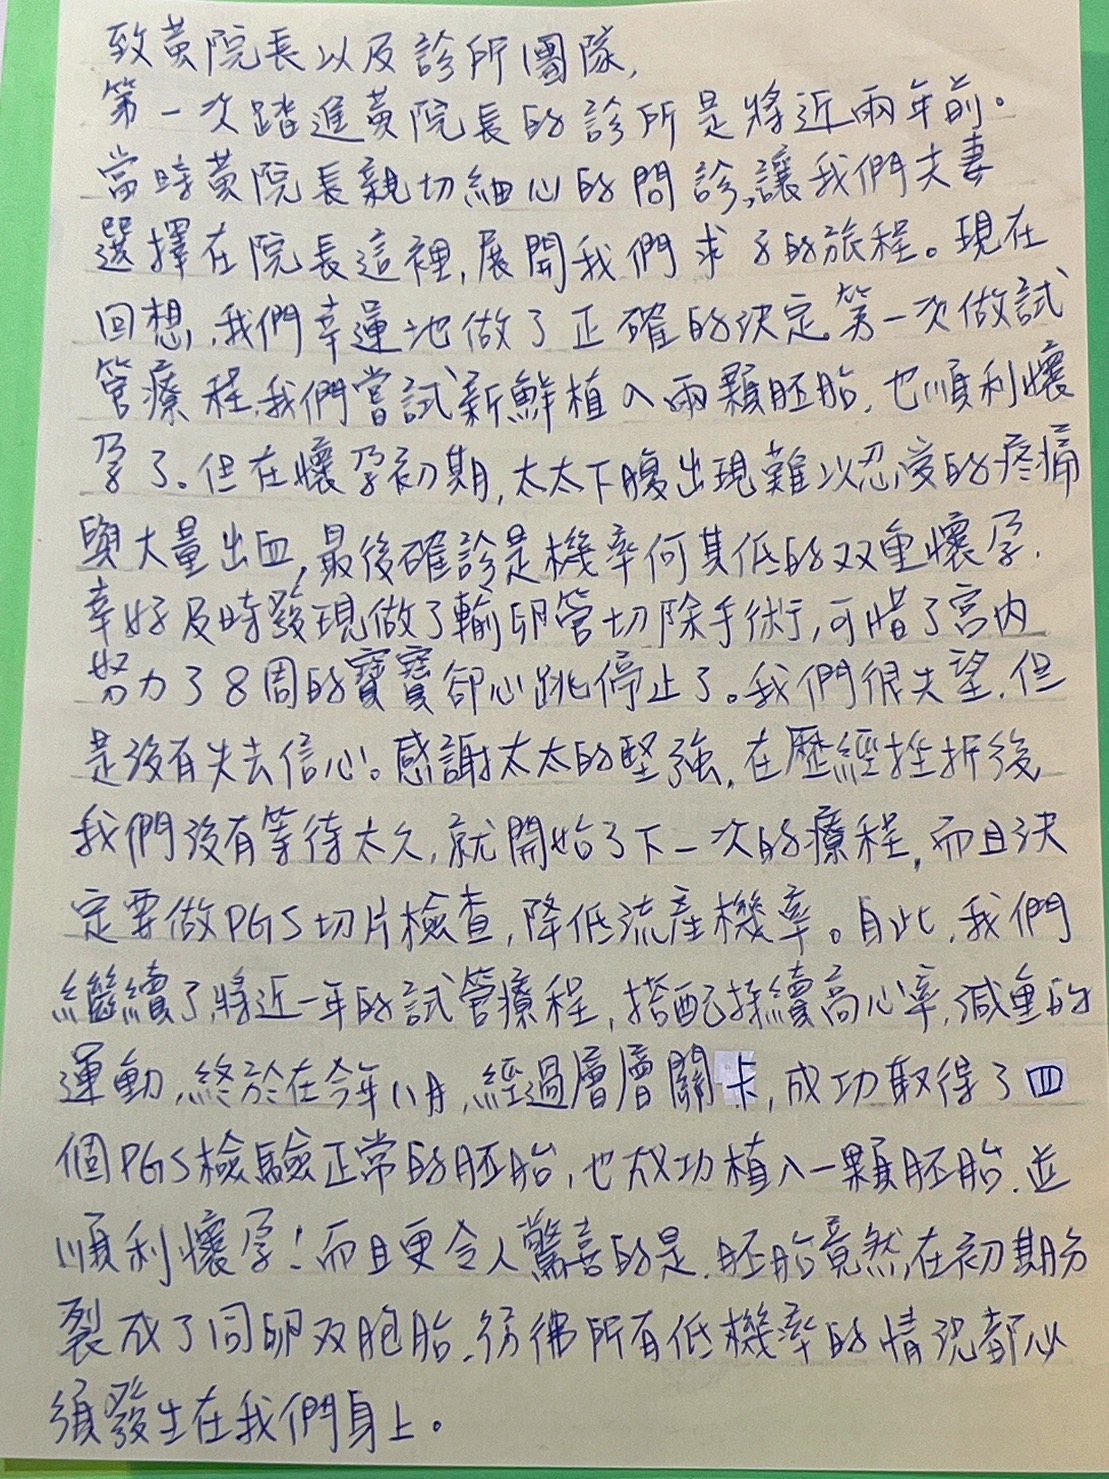 致黃院長以及診所團隊,
第一次踏進黃院長的診所是將近兩年前。
當時黃院長親切細心的問診,讓我們夫妻
選擇在院長這裡,展開我們求子的旅程。現在
回想,我們幸運地做了正確的決定。第一次做試
管療程,我們嘗試新鮮植入兩顆胚胎,也順利懷
孕了。但在懷孕初期,太太下腹出現難以忍受的疼痛
與大量出血,最後確診是機率何其低的双重懷孕.
幸好及時發現做了輸卵管切除手術,可惜了宮內
努力了8周的寶寶卻心跳停止了。我們很失望.但
是沒有失去信心。感謝太太的堅強,在歷經挫折後
我們沒有等待太久,就開始了下一次的療程,而且決
定要做PGS切片檢查,降低流產機率。自此,我們
繼續了將近一年的試管療程,搭配持續高心率,減重的
運動,終於在今年八月,經過層層關卡,成功取得了四
個PGS檢驗正常的胚胎,也成功植入一顆胚胎.並
順利懷孕!而且更令人驚喜的是.胚胎竟然在初期分
裂成了同卵双胞胎.彷彿所有低機率的情況都必
須發生在我們身上。